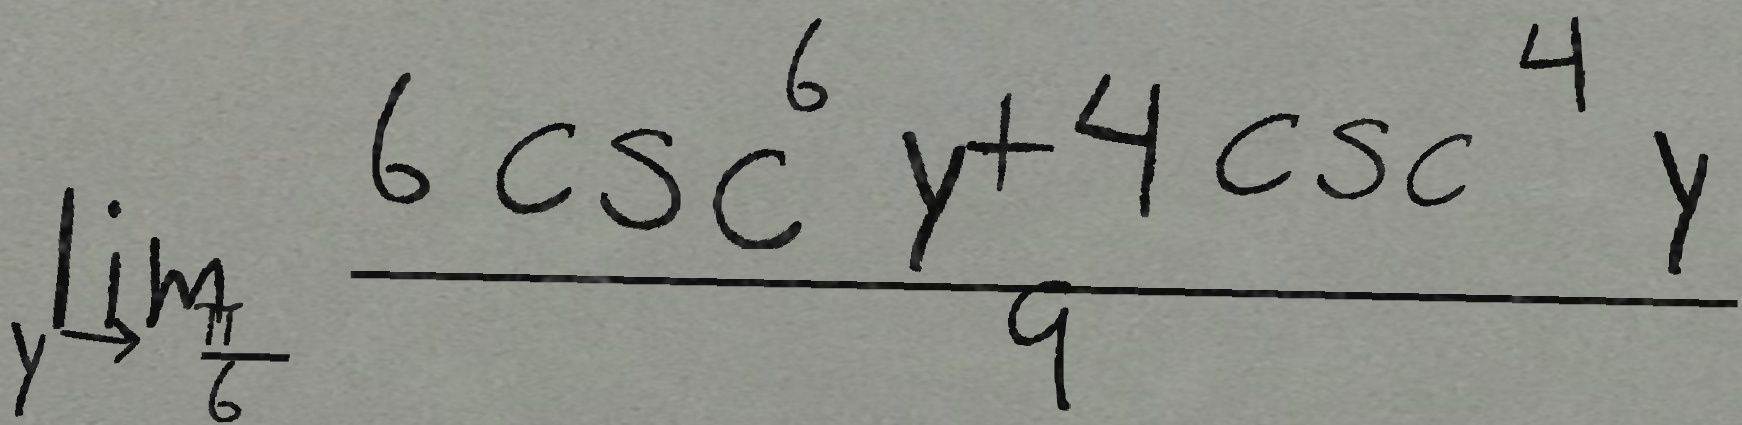 \lim_{y \to \frac{\pi}{6}} \frac{6 \csc^6 y + 4 \csc^4 y}{9}